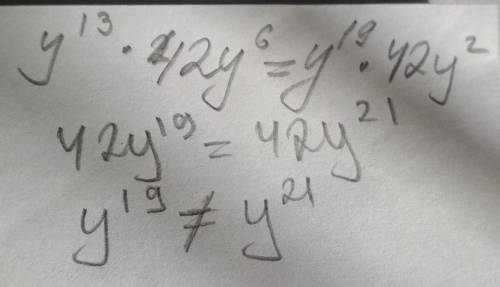 y¹³ · 42y⁶ = y¹⁹ · 42y²
42y¹⁹ = 42y²¹
y¹⁹ ≠ y²¹